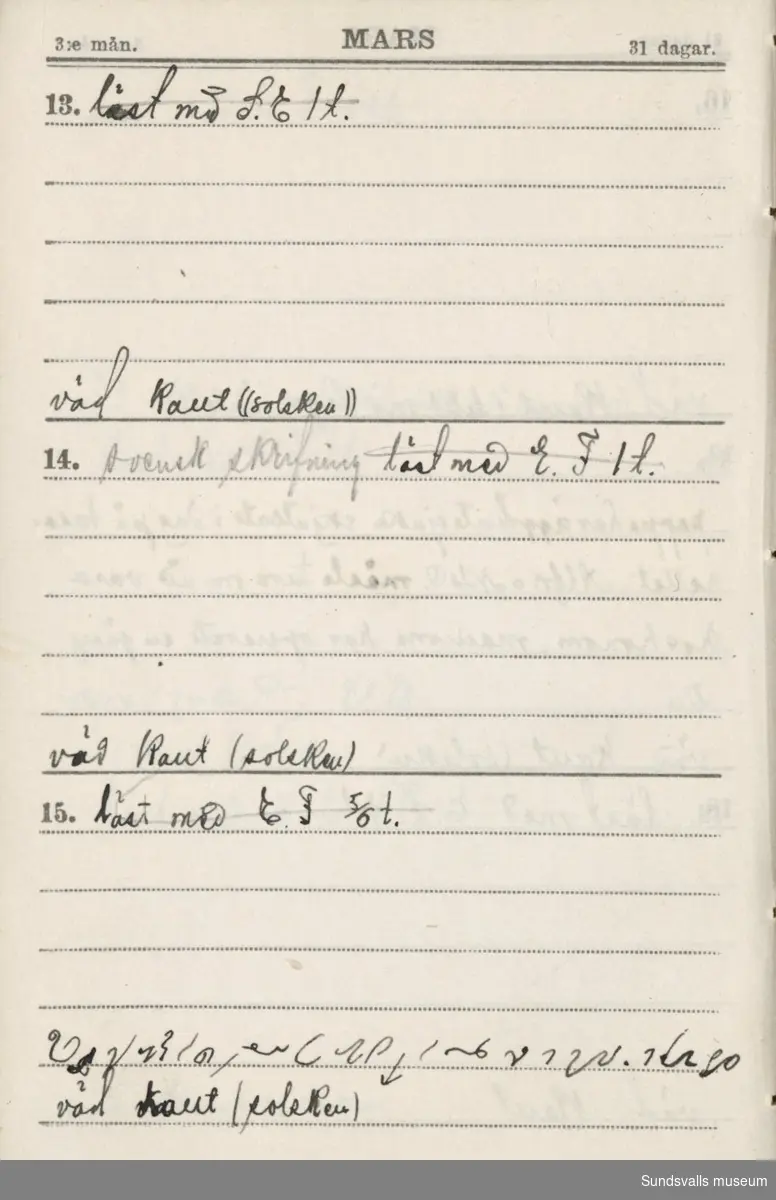 3:e mån. MARS 31 dagar.
13. läst med S. E 1 t.
väd Raut ((solsken))
14. svensk skrifning läst med E. F 1 t.
väd Raut (solsken)
15. läst med E. F 5/6 t.
väd Raut (solsken)
Sundsvalls museum